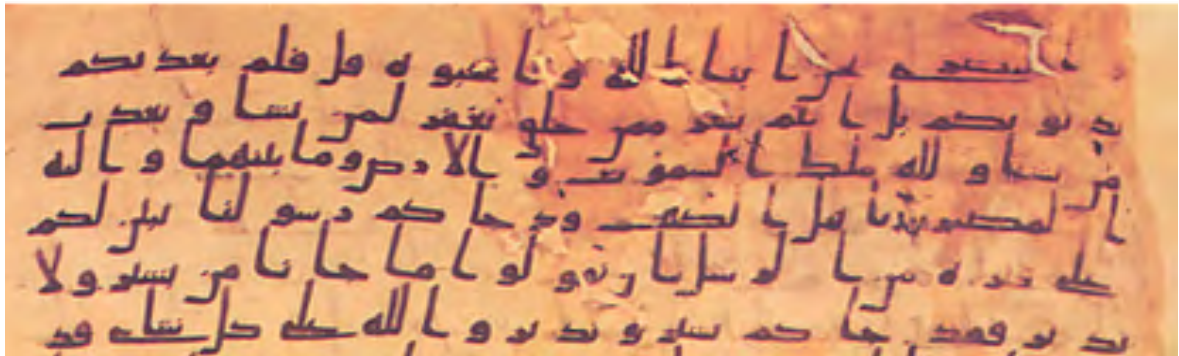 نحن ابنا الله و احبوه قل فلم يعذبكم
بذنوبكم بل انتم بشر ممن خلق يغفر لمن يشا و يعذب
من يشا و لله ملك السموت و الارض وما بينهما و اليه
المصير ياهل الكتب قد جاكم رسولنا يبين لكم
على فتره من الرسل ان تقولوا ما جانا من بشير ولا
نذير فقد جاكم بشير و نذير و الله على كل شاى قد